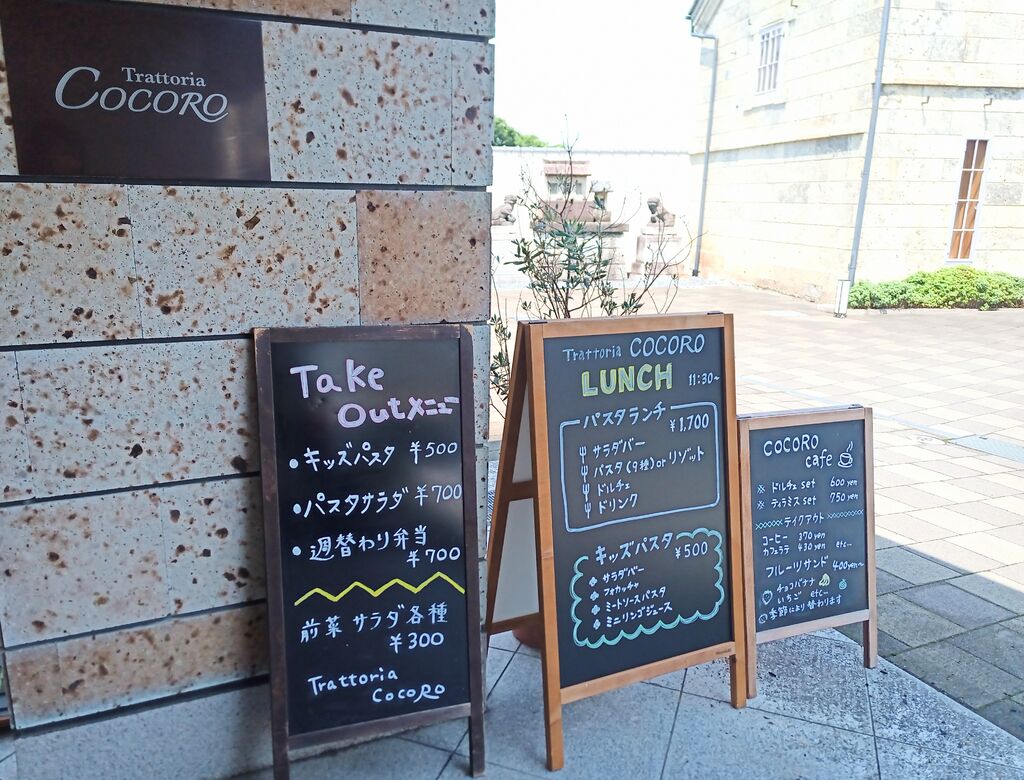 Trattoria
COCORO
Take
Outメニュー
・キッズパスタ ¥500
・パスタサラダ ¥700
・週替わり弁当
¥700
前菜 サラダ各種
¥300
Trattoria
COCORO
Trattoria COCORO
LUNCH 11:30~
パスタランチ
¥1,700
サラダバー
パスタ(9種)or リゾット
ドルチェ
ドリンク
キッズパスタ ¥500
サラダバー
フォカッチャ
ミートソースパスタ
ミニリンゴジュース
COCORO
cafe
※ ドルチェ set 600yen
※ ティラミス set 750yen
テイクアウト
コーヒー 370yen
カフェラテ 430yen etc...
フルーツサンド 400yen~
チョコバナナ
いちご etc...
季節により替わります